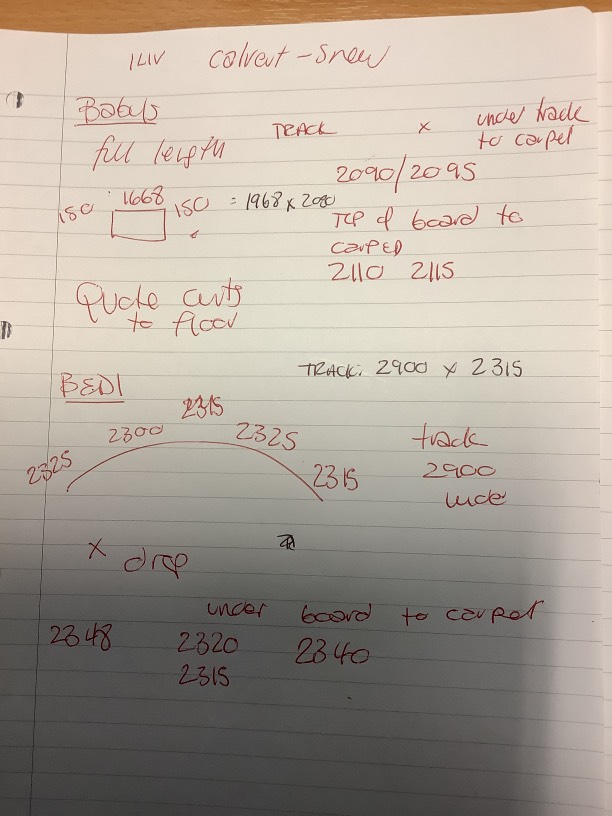 ILIV Calvert-Snew
Babys
full length
TRACK x under track
to carpet
2090/2095
150 1668 150 = 1968 x 2080
TOP of board to
CARPED
2110 2115
Quote curts
to floor
TRACK: 2900 x 2315
BED1
2325 2300 2315 2325 2315
track
2900
wide
x drop
under board to carpet
2348 2320 2340
2315